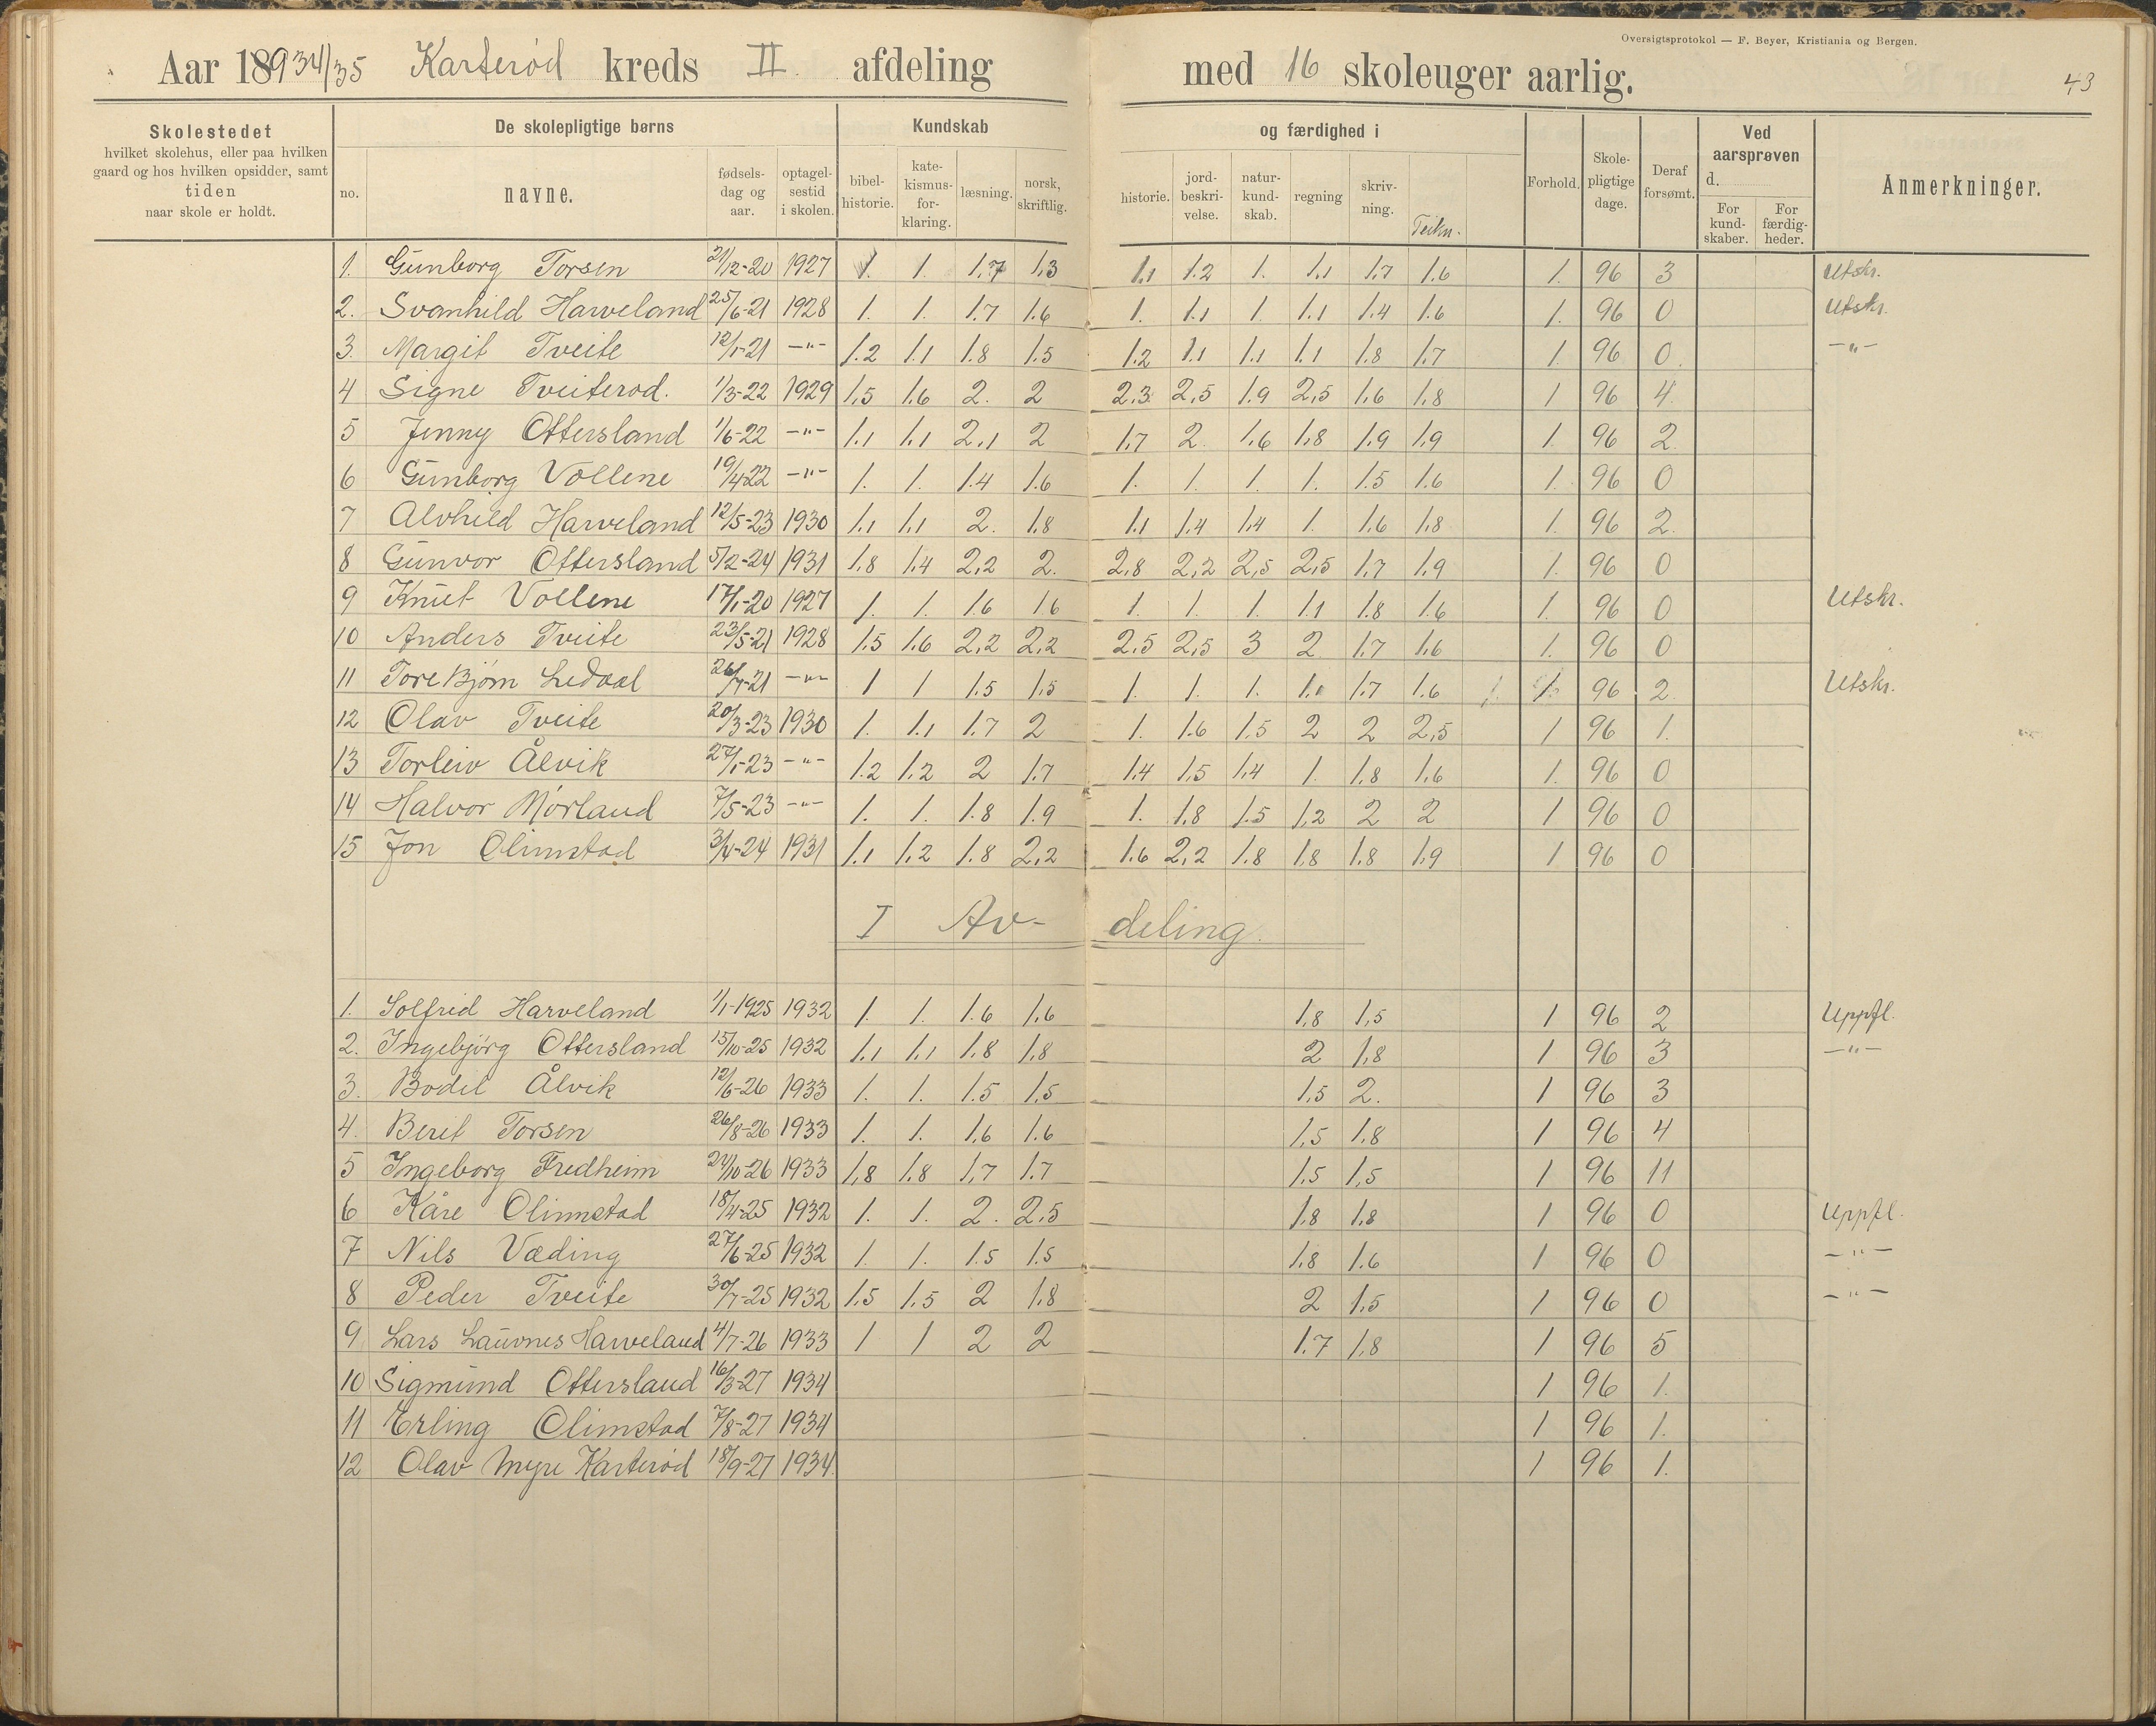 Oversigtsprotokol — F. Beyer, Kristiania og Bergen.
Aar 18934/35 Karterød kreds II afdeling med 16 skoleuger aarlig.
43
Skolestedet hvilket skolehus, eller paa hvilken gaard og hos hvilken opsidder, samt tiden naar skole er holdt.
De skolepligtige børns
no. navne. fødsels-dag og aar. optagel-sestid i skolen.
Kundskab og færdighed i
bibel-historie. kate-kismus-for-klaring. læsning. norsk, skriftlig. historie. jord-beskri-velse. natur-kund-skab. regning skriv-ning. Teikn.
Forhold. Skole-pligtige dage. Deraf forsømt.
Ved aarsprøven d.
For kund-skaber. For færdig-heder.
Anmerkninger.
1. Gunborg Torsen 21/12-20 1927 1. 1. 1.7 1,3 1.1 1.2 1. 1.1 1.7 1.6 1. 96 3 Utskr.
2. Svanhild Harveland 25/6-21 1928 1. 1. 1.7 1.6 1. 1.1 1. 1.1 1.4 1.6 1. 96 0 Utskr.
3. Margit Tveite 12/1-21 -"- 1.2 1.1 1.8 1.5 1.2 1.1 1.1 1.1 1.8 1.7 1. 96 0. -"-
4 Signe Tveiterød. 1/3-22 1929 1,5 1.6 2. 2 2.3 2,5 1.9 2,5 1.6 1.8 1 96 4.
5 Jenny Ottersland 1/6-22 -"- 1.1 1.1 2,1 2 1.7 2. 1.6 1.8 1.9 1.9 1. 96 2.
6 Gunborg Vollene 19/4-22 -"- 1. 1. 1.4 1.6 1. 1. 1. 1. 1.5 1.6 1. 96 0
7 Alvhild Harveland 12/5-23 1930 1.1 1.1 2. 1.8 1.1 1.4 1.4 1. 1.6 1.8 1. 96 2.
8 Gunvor Ottersland 5/2-24 1931 1.8 1.4 2,2 2. 2,8 2,2 2,5 2,5 1.7 1.9 1. 96 0
9 Knut Vollene 17/1-20 1927 1. 1. 1.6 1 6 1. 1. 1. 1.1 1.8 1.6 1. 96 0 Utskr.
10 Anders Tveite 23/5-21 1928 1.5 1.6 2,2 2,2 2.5 2,5 3 2 1.7 1.6 1. 96 0
11 Tore Bjørn Ledaal 26/7-21 -"- 1 1 1.5 1.5 1. 1. 1. 1.1 1.7 1.6 1. 96 2. Utskr.
12 Olav Tveite 20/3-23 1930 1. 1.1 1.7 2 1. 1.6 1.5 2 2 2,5 1 96 1.
13 Torleiv Ålvik 27/1-23 -"- 1.2 1.2 2 1.7 1.4 1.5 1.4 1. 1.8 1.6 1. 96 0
14 Halvor Mørland 7/5-23 -"- 1. 1. 1.8 1.9 1. 1.8 1.5 1,2 2 2 1 96 0
15 Jon Olimstad 3/4-24 1931 1.1 1.2 1.8 2,2 1.6 2,2 1.8 1.8 1.8 1.9 1 96 0
I Av-deling.
1. Solfrid Harveland 1/1-1925 1932 1. 1. 1.6 1.6 1.8 1,5 1 96 2 Uppfl.
2. Ingebjörg Ottersland 15/10-25 1932 1.1 1.1 1.8 1.8 2 1.8 1 96 3 -"-
3. Bodil Ålvik 12/6-26 1933 1. 1. 1.5 1,5 1,5 2. 1 96 3
4. Berit Torsen 26/8-26 1933 1. 1. 1.6 1.6 1,5 1.8 1 96 4
5 Ingeborg Fredheim 24/10-26 1933 1,8 1.8 1,7 1.7 1.5 1,5 1 96 11
6 Kåre Olimstad 18/4-25 1932 1. 1. 2. 2.5 1.8 1.8 1 96 0 Uppfl.
7 Nils Væding 27/6-25 1932 1. 1. 1.5 1.5 1.8 1.6 1 96 0 -"-
8 Peder Tveite 30/7-25 1932 1.5 1.5 2 1.8 2 1.5 1 96 0 -"-
9 Lars Laurnes Harveland 4/7-26 1933 1 1 2 2 1.7 1.8 1 96 5
10 Sigmund Ottersland 16/3-27 1934 1 96 1.
11 Erling Olimstad 7/8-27 1934 1 96 1.
12 Olav Myre Karterød 18/9-27 1934. 1 96 1.